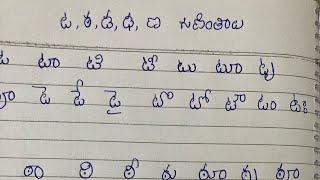 ట, ఠ, డ, ఢ, ణ గునింతాలు
ట టా టి టీ టు టూ టృ
టె టే టై టొ టో టౌ టం టః
ఠా ఠి ఠీ ఠు ఠూ ఠృ ఠౄ